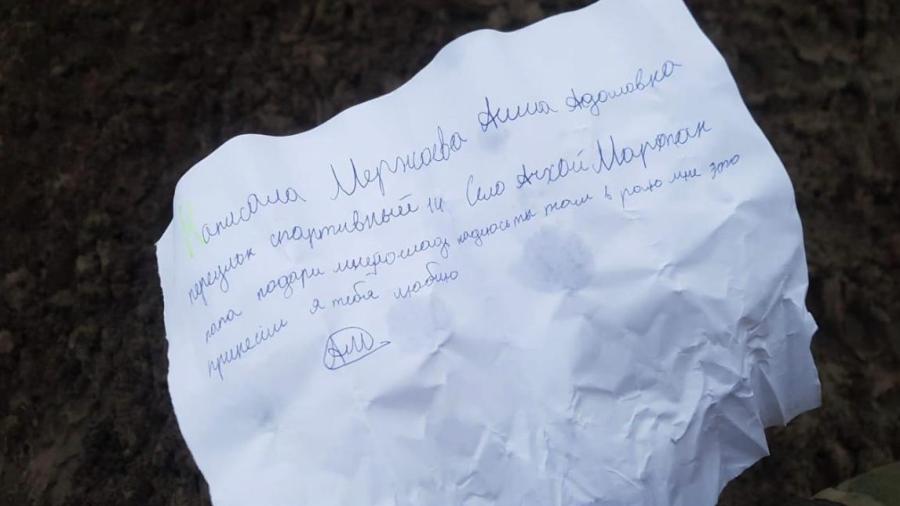 Написала Мержоева Анна Адамовна
переулок спортивный 14 Село Ачхой Мартан
папа подари мне лошадь надиось ты там в раю мне это
принесёш я тебя люблю
АМ